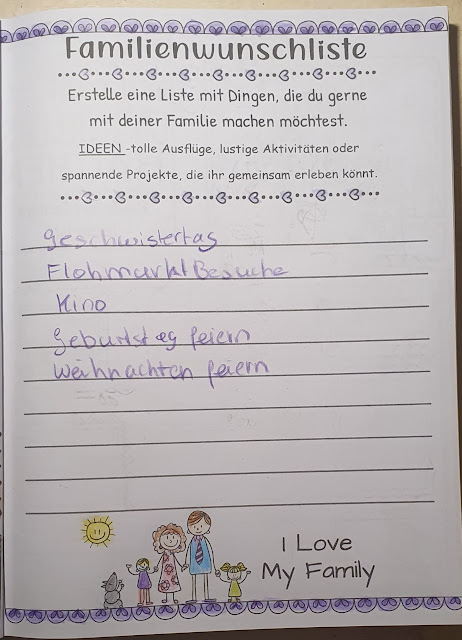 Familienwunschliste
Erstelle eine Liste mit Dingen, die du gerne
mit deiner Familie machen möchtest.
IDEEN -tolle Ausflüge, lustige Aktivitäten oder
spannende Projekte, die ihr gemeinsam erleben könnt.
Geschwistertag
Flohmarkt Besuche
Kino
Geburtstag feiern
Weihnachten feiern
I Love
My Family